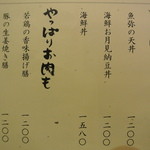 魚弥の天丼 一二〇〇
海鮮お月見納豆丼 一二〇〇
海鮮丼 一五八〇
やっぱりお肉も
若鶏の香味揚げ膳 一二〇〇
豚の生姜焼き膳 一二〇〇